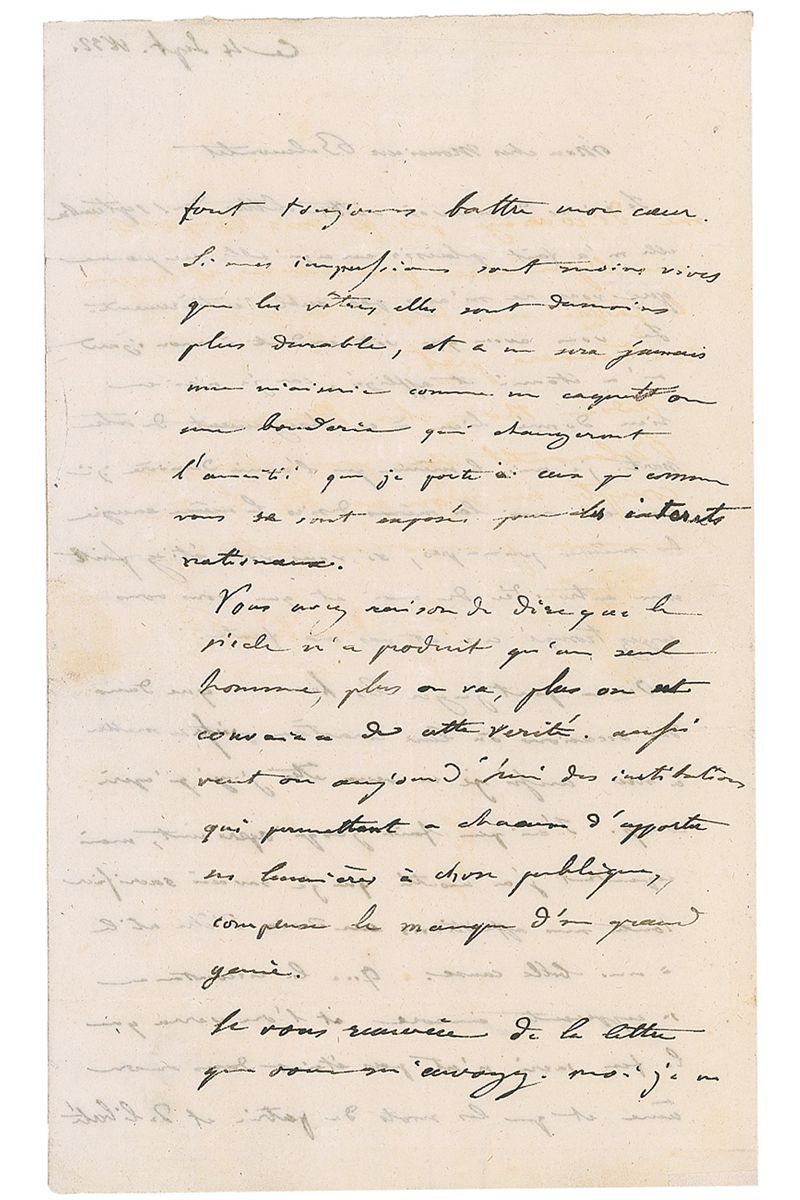 font toujours battre mon cœur.
Si mes impressions sont moins vives
que les vôtres elles sont du moins
plus durable, et ce ne sera jamais
une niaiserie comme un caquet ou
une bouderie qui changeront
l'amitié que je porte à ceux qui comme
vous se sont exposés pour les interets
nationaux.
Vous avez raison de dire que le
siecle n'a produit qu'un seul
homme, plus on va, plus on est
convaincu de cette verité. aussi
veut on aujourd'hui des institutions
qui permettant a chacun d'apporter
ses lumières à chose publique,
compense le manque d'un grand
genie.
Je vous remercie de la lettre
que vous m'envoyez. moi je ne